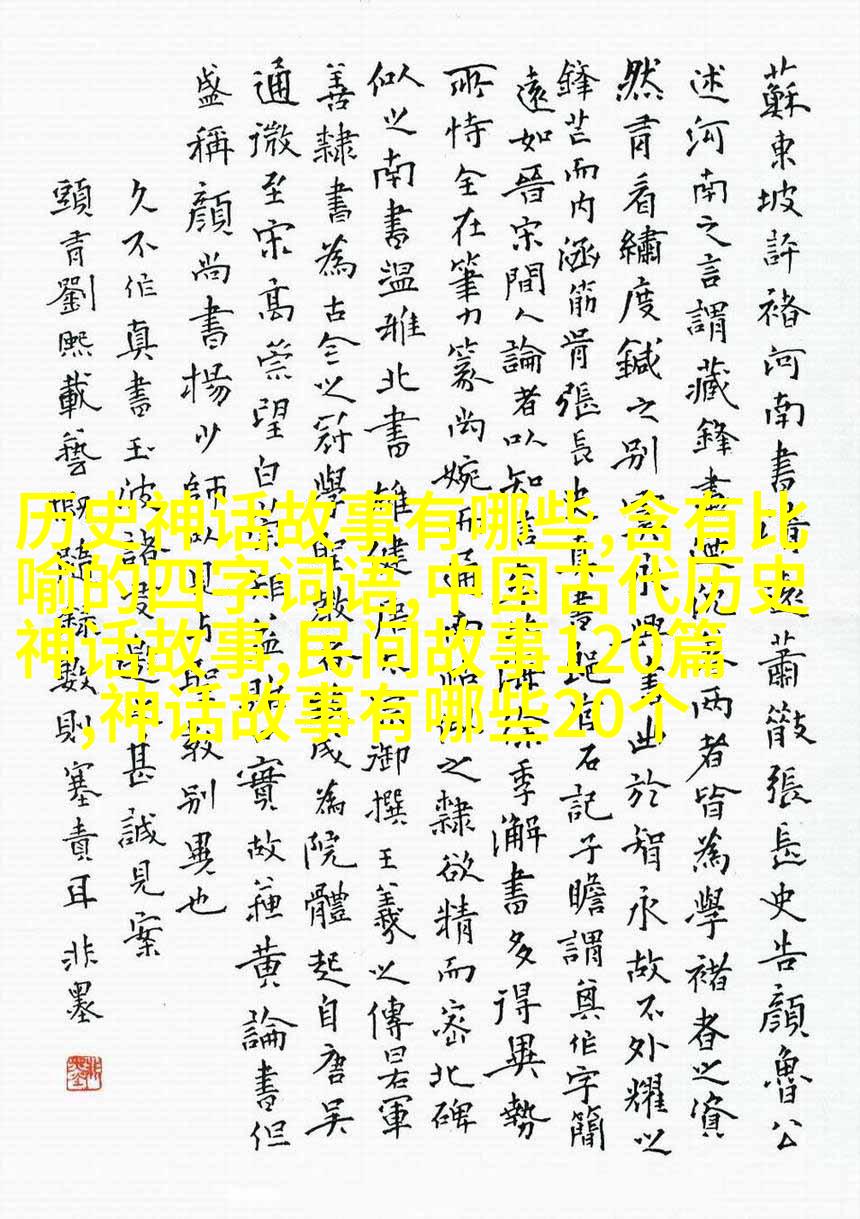 蘇東坡評褚河南書清遠蕭散張長史告顏魯公
述河南之言謂藏鋒畫沉兩者皆為學褚者之資
然看繡度鍼之別永興書出於智永故不外耀
鋒芒而內涵筋骨張長史真書郎官石記子瞻謂作字簡
遠如晉宋間人論者以知言徐季澥書多得異勢
所恃全在筆力篆尚婉而通南帖似之隸欲精而密北碑
似之南書溫雅北書雄健唐太宗御撰王羲之傳曰右軍
善隸書為古今之冠學為院體起自唐吳
通微至宋高望白實故蘇黃論書但
盛稱顏尚書楊少師以見與較別異也
久不作真書玉波諸友甚誠見案
頭有劉熙載藝概錄數則塞責耳 非墨
历史神话故事有哪些,含有比
喻的四字词语,中国古代历史
神话故事,民间故事120篇
,神话故事有哪些20个